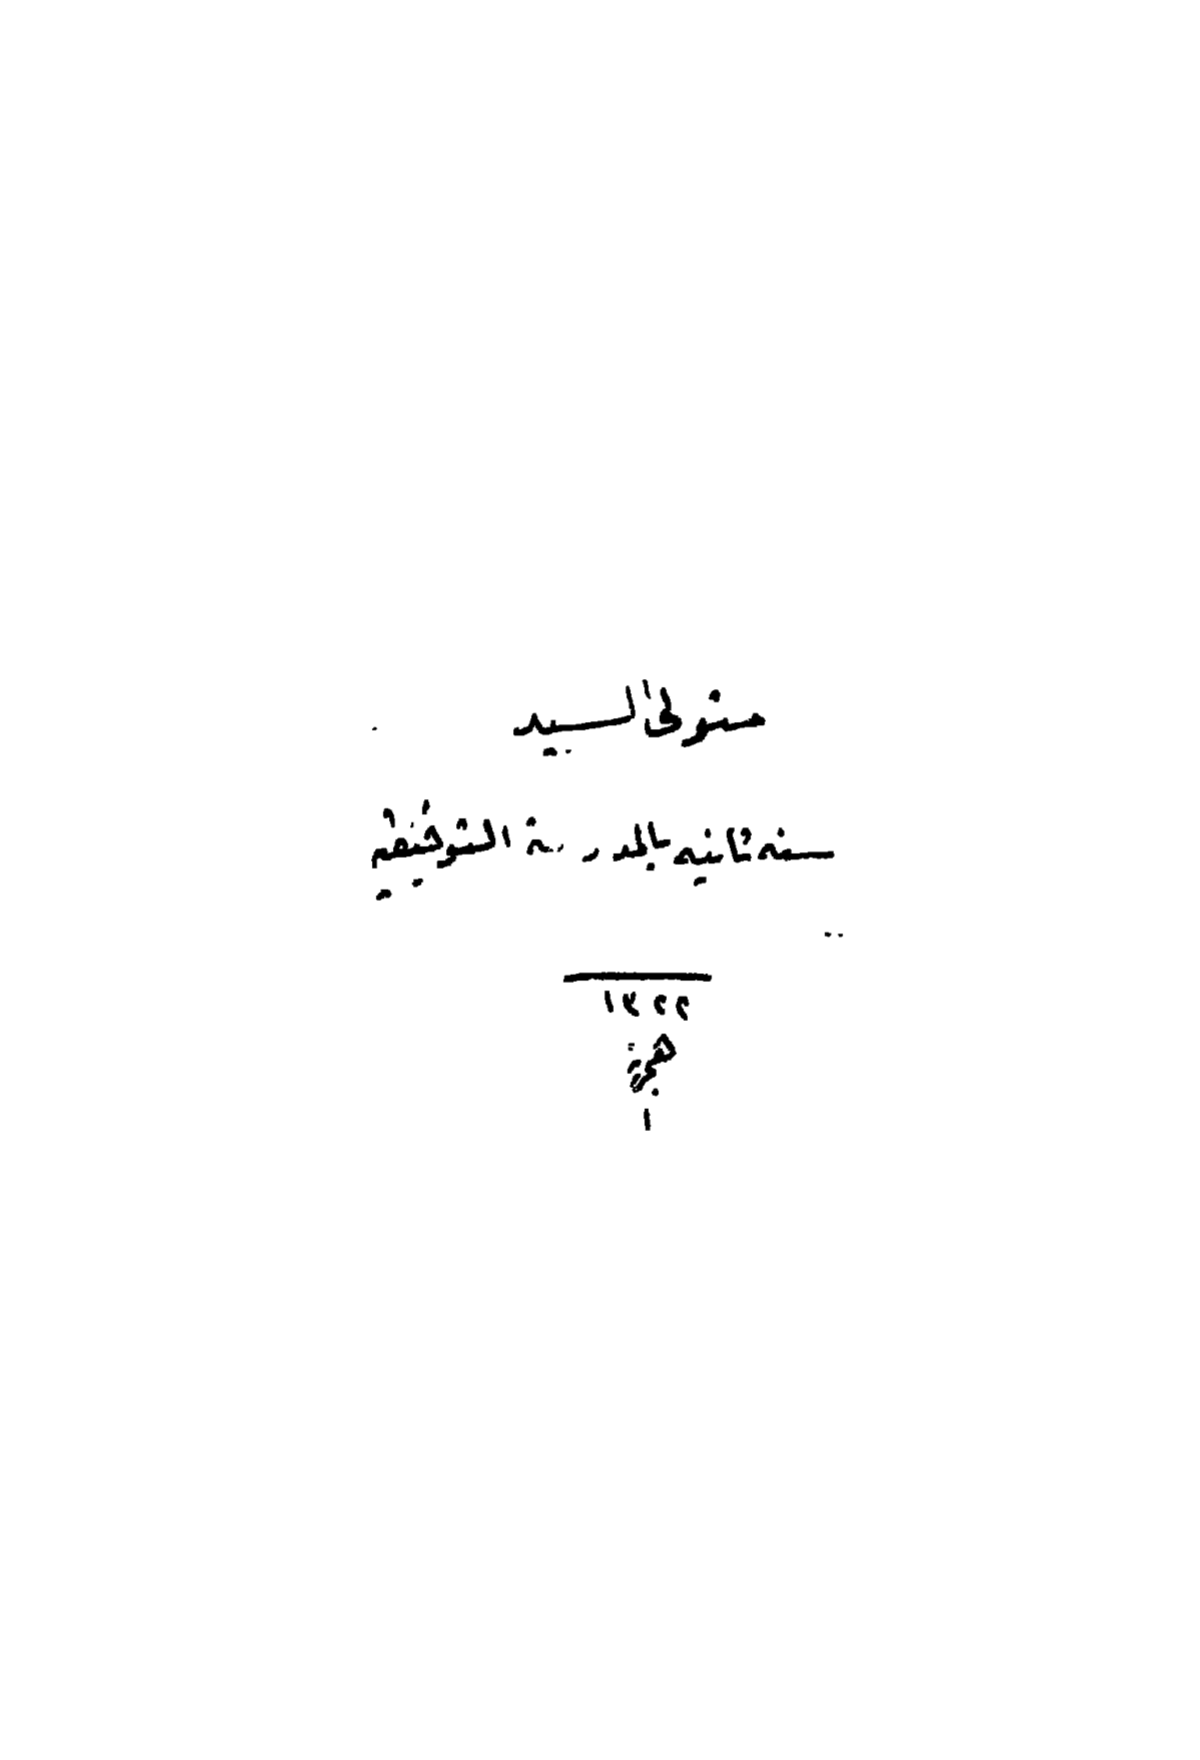 متولى السيد
سنه ثانيه بالمدرسة التوفيقيه
١٣٢٢
هجرية
١